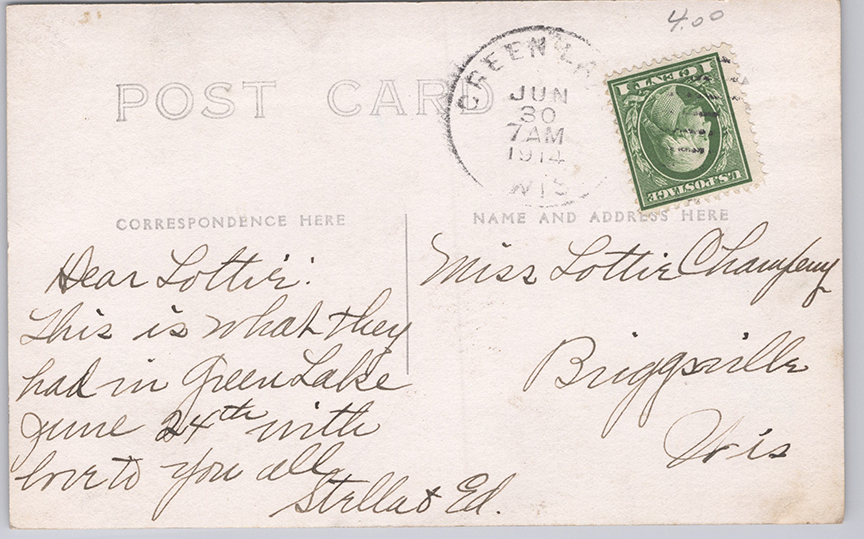 4.00
POST CARD
GREEN LA
JUN
30
7AM
1914
WIS
1 CENT 1
U.S. POSTAGE
CORRESPONDENCE HERE
NAME AND ADDRESS HERE
Dear Lottie:
This is what they
had in Green Lake
June 24th with
love to you all
Stella & Ed.
Miss Lottie
Briggsville
Wis